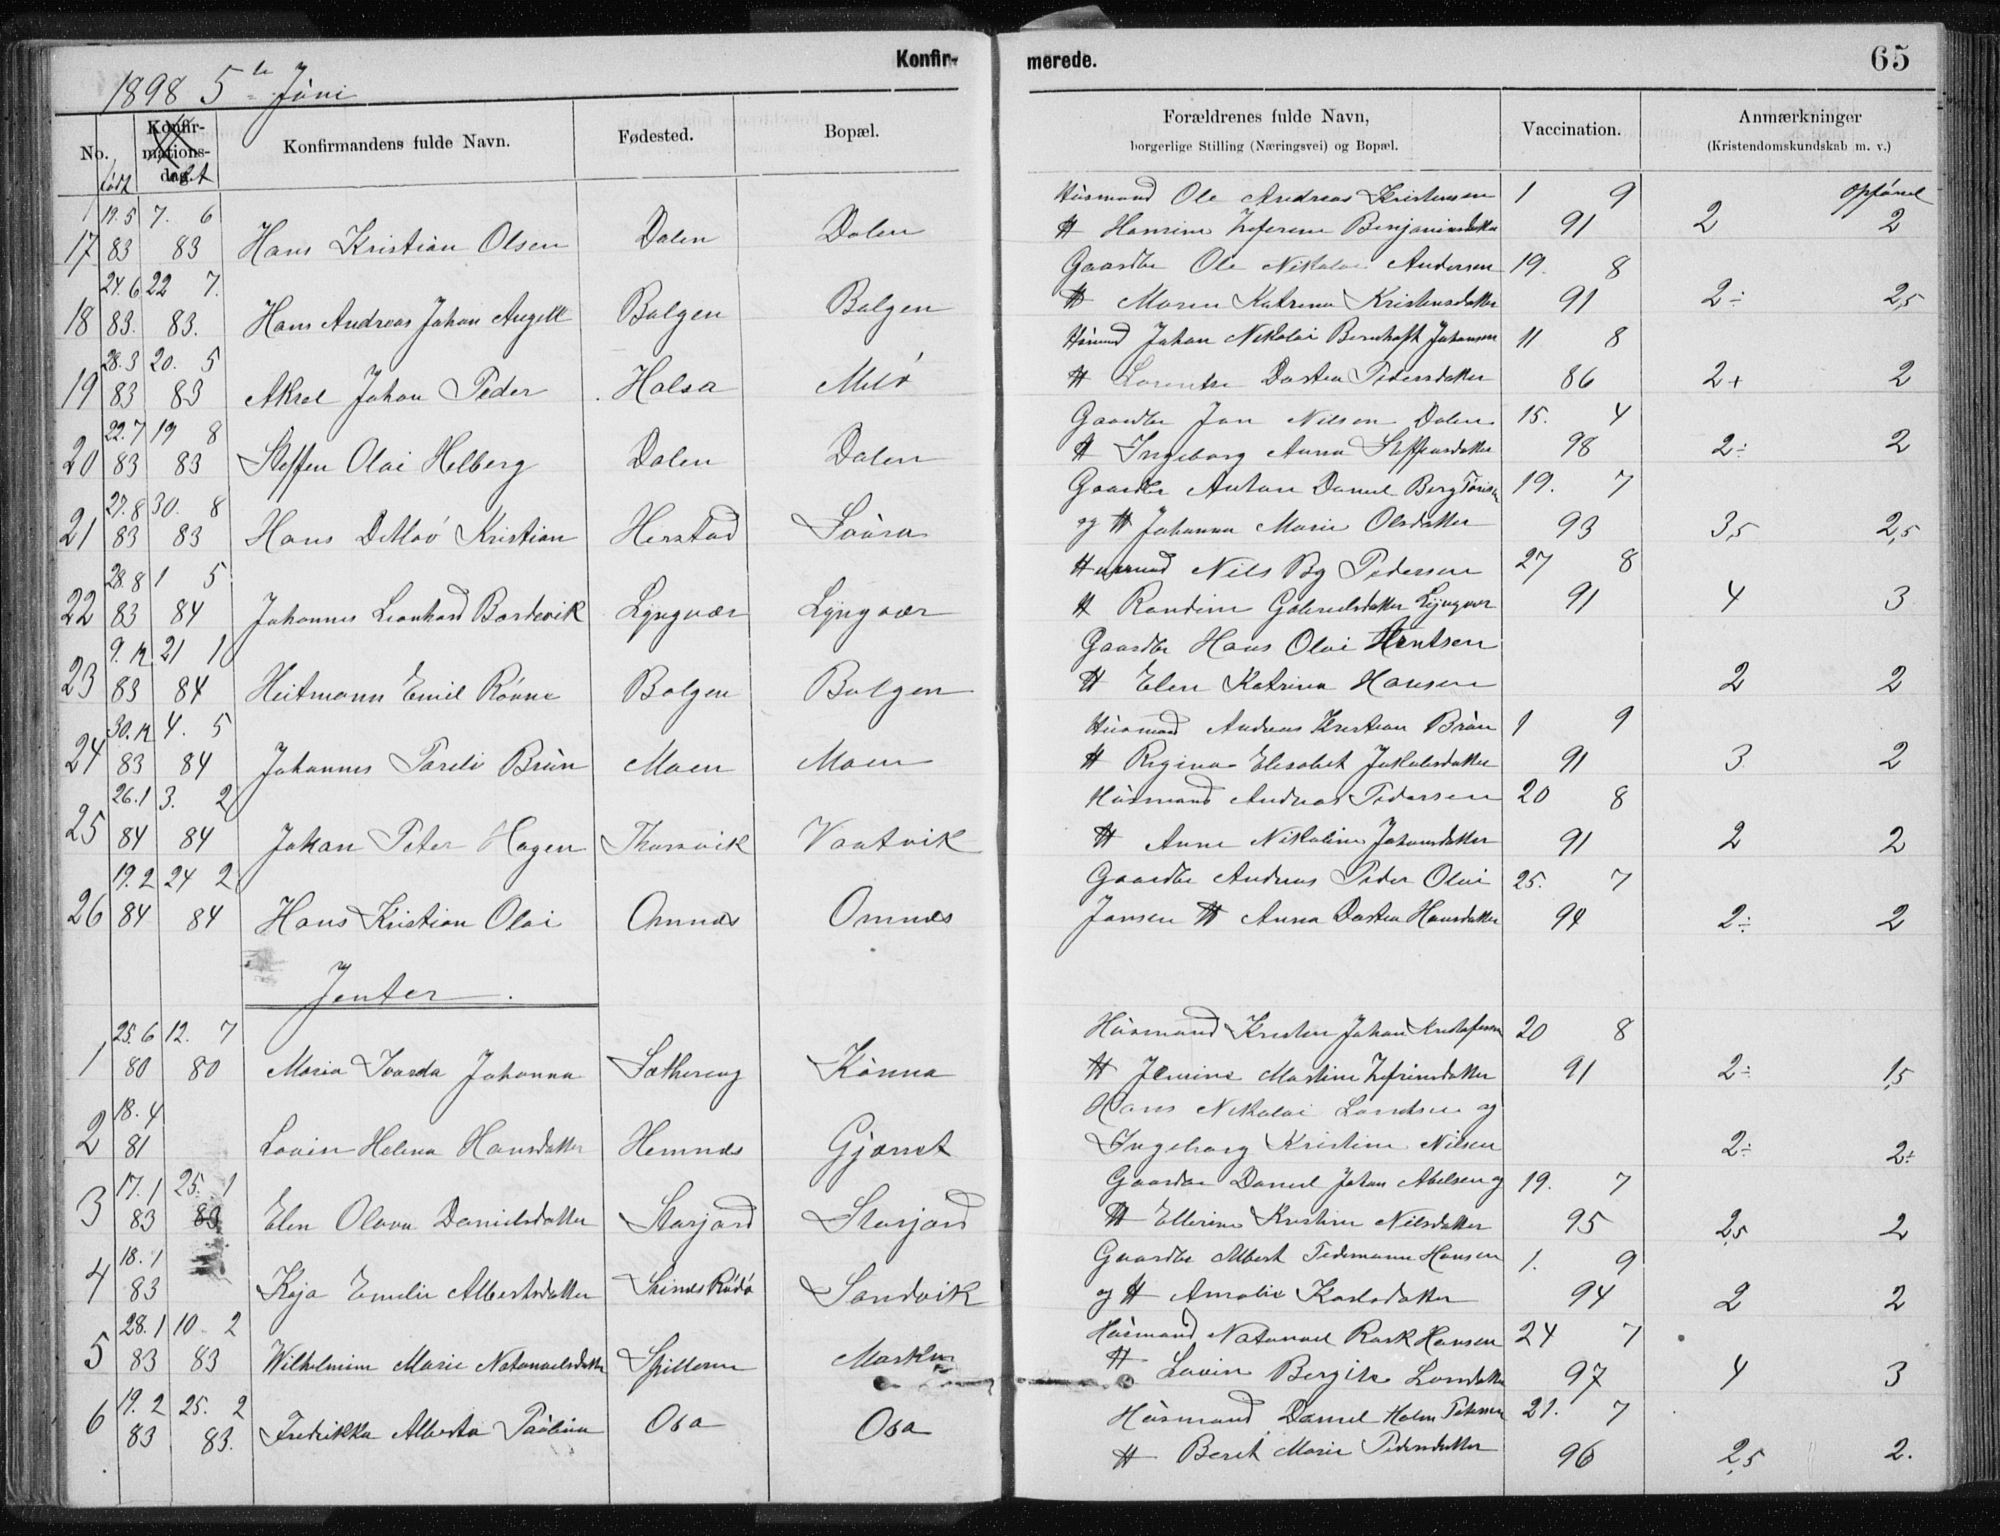 Konfir-
merede.
65
1898 5te Júni
No.
Konfir-
mations-
dag.
født
Konfirmandens fulde Navn.
Fødested.
Bopæl.
Forældrenes fulde Navn,
borgerlige Stilling (Næringsvei) og Bopæl.
Vaccination.
Anmærkninger
(Kristendomskundskab m. v.)
19.5 7. 6 Húsmand Ole Andreas Kristensen 1 9 opførsel
17 83 83 Hans Kristian Olsen Dalen Dalen H Hansine Zeferine Benjaminsdatter 91 2 2
24.6 22 7. Gaardbr Ole Nikolai Andersen 19. 8
18 83. 83. Hans Andreas Johan Angell Bolgen Bolgen H Maren Katrina Kristensdatter 91 2÷ 2,5
28.3 20. 5 Johan Nikolai Bernhoft Johansen 11 8
19 83 83 Aksel Johan Peder Halsa Melø H Lorentse Dortea Pedersdatter 86 2+ 2
22.7 19 8 Gaardbr Jan Nilsen Dalen 15. 4
20 83 83 Steffen Olai Helberg Dalen Dalen H Ingeborg Anna Steffensdatter 98 2÷ 2
27.8 30. 8 Gaardbr Anton Daniel Berg 19. 7
21 83 83 Hans Kristian Herstad og H Johanna Marie Olsdatter 93 3,5 2,5
28.8 1 5 Nils Pedersen 27 8
22 83 84 Johannes Leonhard Bardevik Lyngvær Lyngvær H Randine Gabrielsdatter Lyngvær 91 4 3
9.12 21 1 Gaardbr Hans Olai Arntsen
23 83 84 Heitmann Emil Rønne Bolgen Bolgen H Elen Katrina Hansen 2 2
30.12 4. 5 Húsmand Andreas Kristian Brún 1 9
24 83 84 Johannes Parelí Brún Moen Moen H Regina Elisabet Jakobsdatter 91 3 2
26.1 3. 2 Húsmand Andreas Pedersen 20 8
25 84 84 Johan Peter Hagen Thorsvik Vaatvik H Anne Nikoline Johansdatter 91 2 2
19.2 24 2 Gaardbr Andreas Peder Olai 25. 7
26 84 84 Hans Kristian Olai Omnes Omnes Jansen H Anna Dortea Hansdatter 94 2÷ 2
Jenter.
25.6 12. 7 Húsmand Kristen Johan Kristofersen 20 8
1 80 80 Maria Ivarda Johanna Kúnna H Jensine Martine Zefriensdatter 91 2÷ 1,5
18.4 Hans Nikolai Lorntsen og
2 81 Lovise Helena Hansdatter Hemnes Gjærset Ingeborg Kristine Nilsen 2÷ 2÷
17.1 25. 1 Gaardbr Daniel Johan Abelsen og 19. 7
3 83 83 Elen Olava Danielsdatter Storjord Storjord H Ellerine Kristine Nilsdatter 95 2,5 2
18.1 Gaardbr Albert Pedermann Hansen 1. 9
4 83 Kaja Emelie Albertsdatter Rødø Sandvik og H Amalie Karlsdatter 94 2 2
28.1 10. 2 Húsmand Natanael Rask Hansen 24 7
5 83 83 Wilhelmine Marie Natanaelsdatter Spilleren H Lovise Bergite Larsdatter 97 4 3
19.2 25. 2 Húsmand Daniel Holm Petersen 21. 7
6 83 83. Fredrikka Alberta Paúlina Osa Osa H Berit Marie Pedersdatter 96 2,5 2.